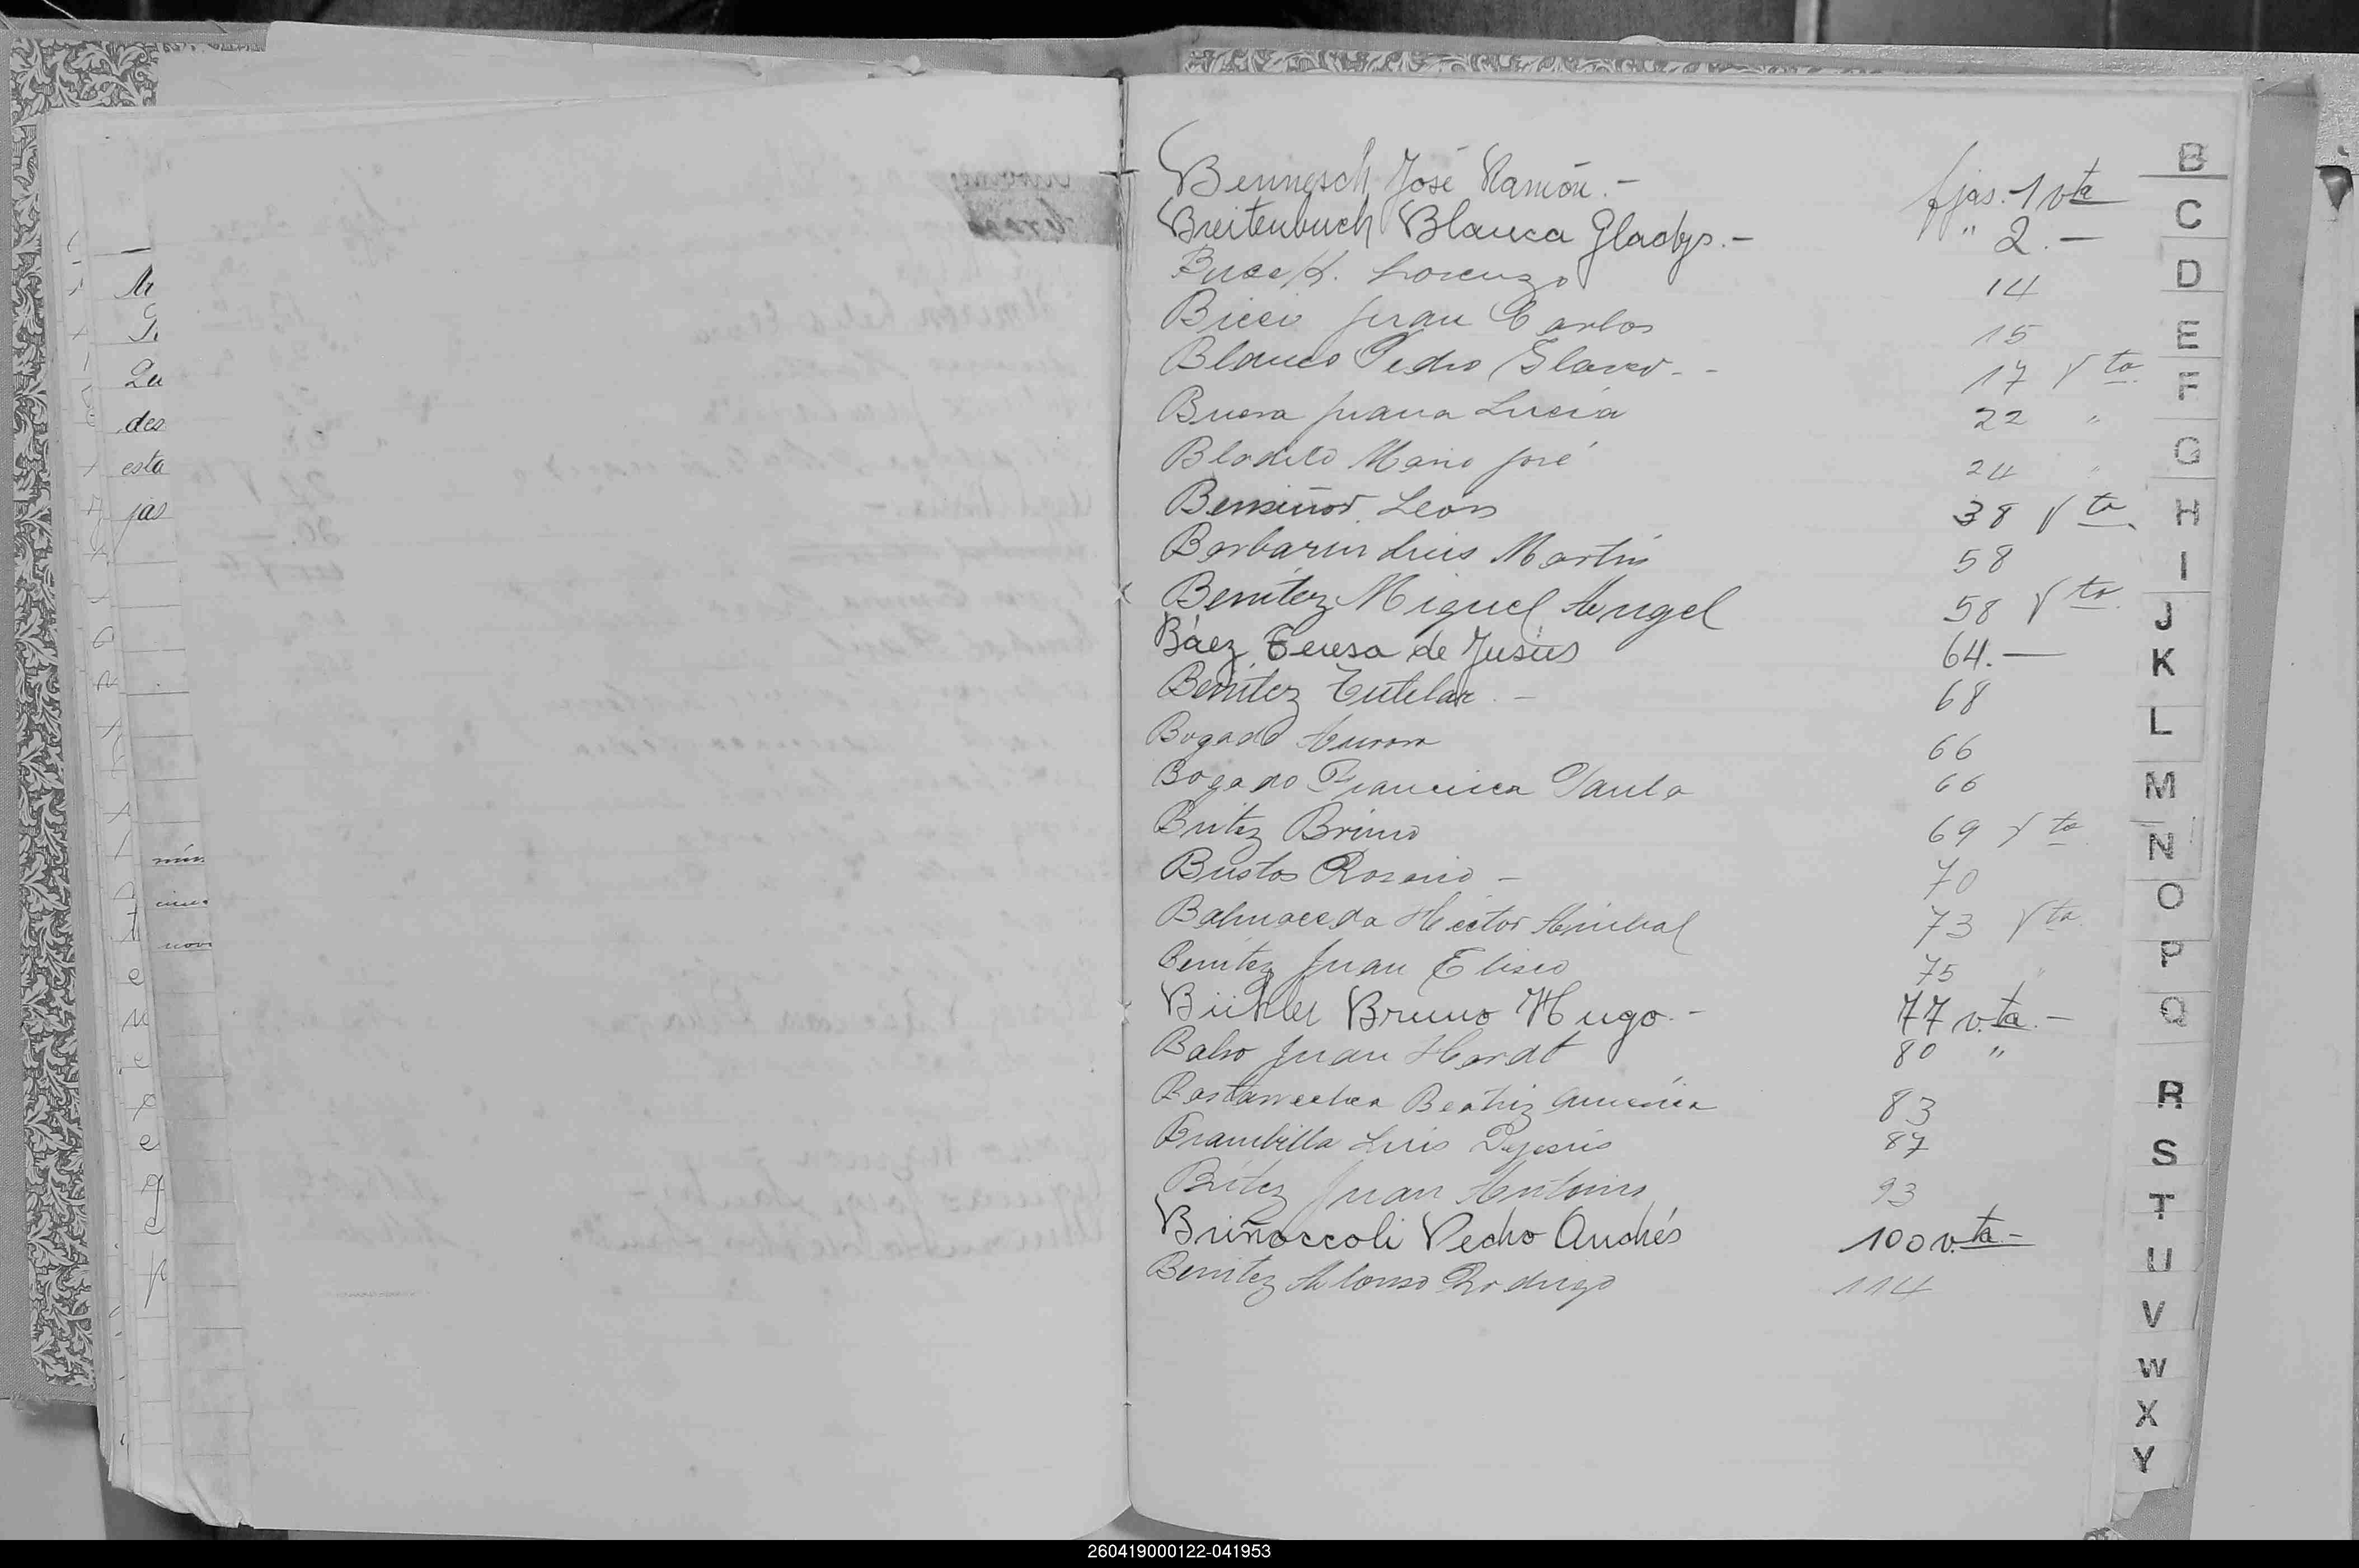 Mr
G.
La
des
esta
jas
Bennesch José Ramón.- fjas.-1 vta
Breitenbuch Blanca Gladys.- " 2.-
Lorenzo 14
Bicci Juan Carlos 15
Blanco Pedro 17 Vta.
Buera Juana Lucia 22 "
Mario José 24 "
Bensiñor León 38 Vta.
Barbarin Luis Martin 58
Benítez Miguel Angel 58 Vta.
Báez Teresa de Jesús 64.—
Benítez Tutelar - 68
Bogado Aurora 66
Bogado Francisca Paula 66
Britez Bruno 69 Vta
Bustos Rosario - 70
Balmaceda Hector Anibal 73 Vta
Benitez Juan Eliseo 75 "
Bühler Bruno Hugo.- 77 v.ta.-
Juan 80 "
Beatriz America 83
Brambilla Luis Dejesús 87
Britez Juan Antonio 93
Briñoccoli Pedro Andrés 100 v.ta.-
Benitez Alonso Rodrigo 114
B
C
D
E
F
G
H
I
J
K
L
M
N
O
P
Q
R
S
T
U
V
W
X
Y
260419000122-041953